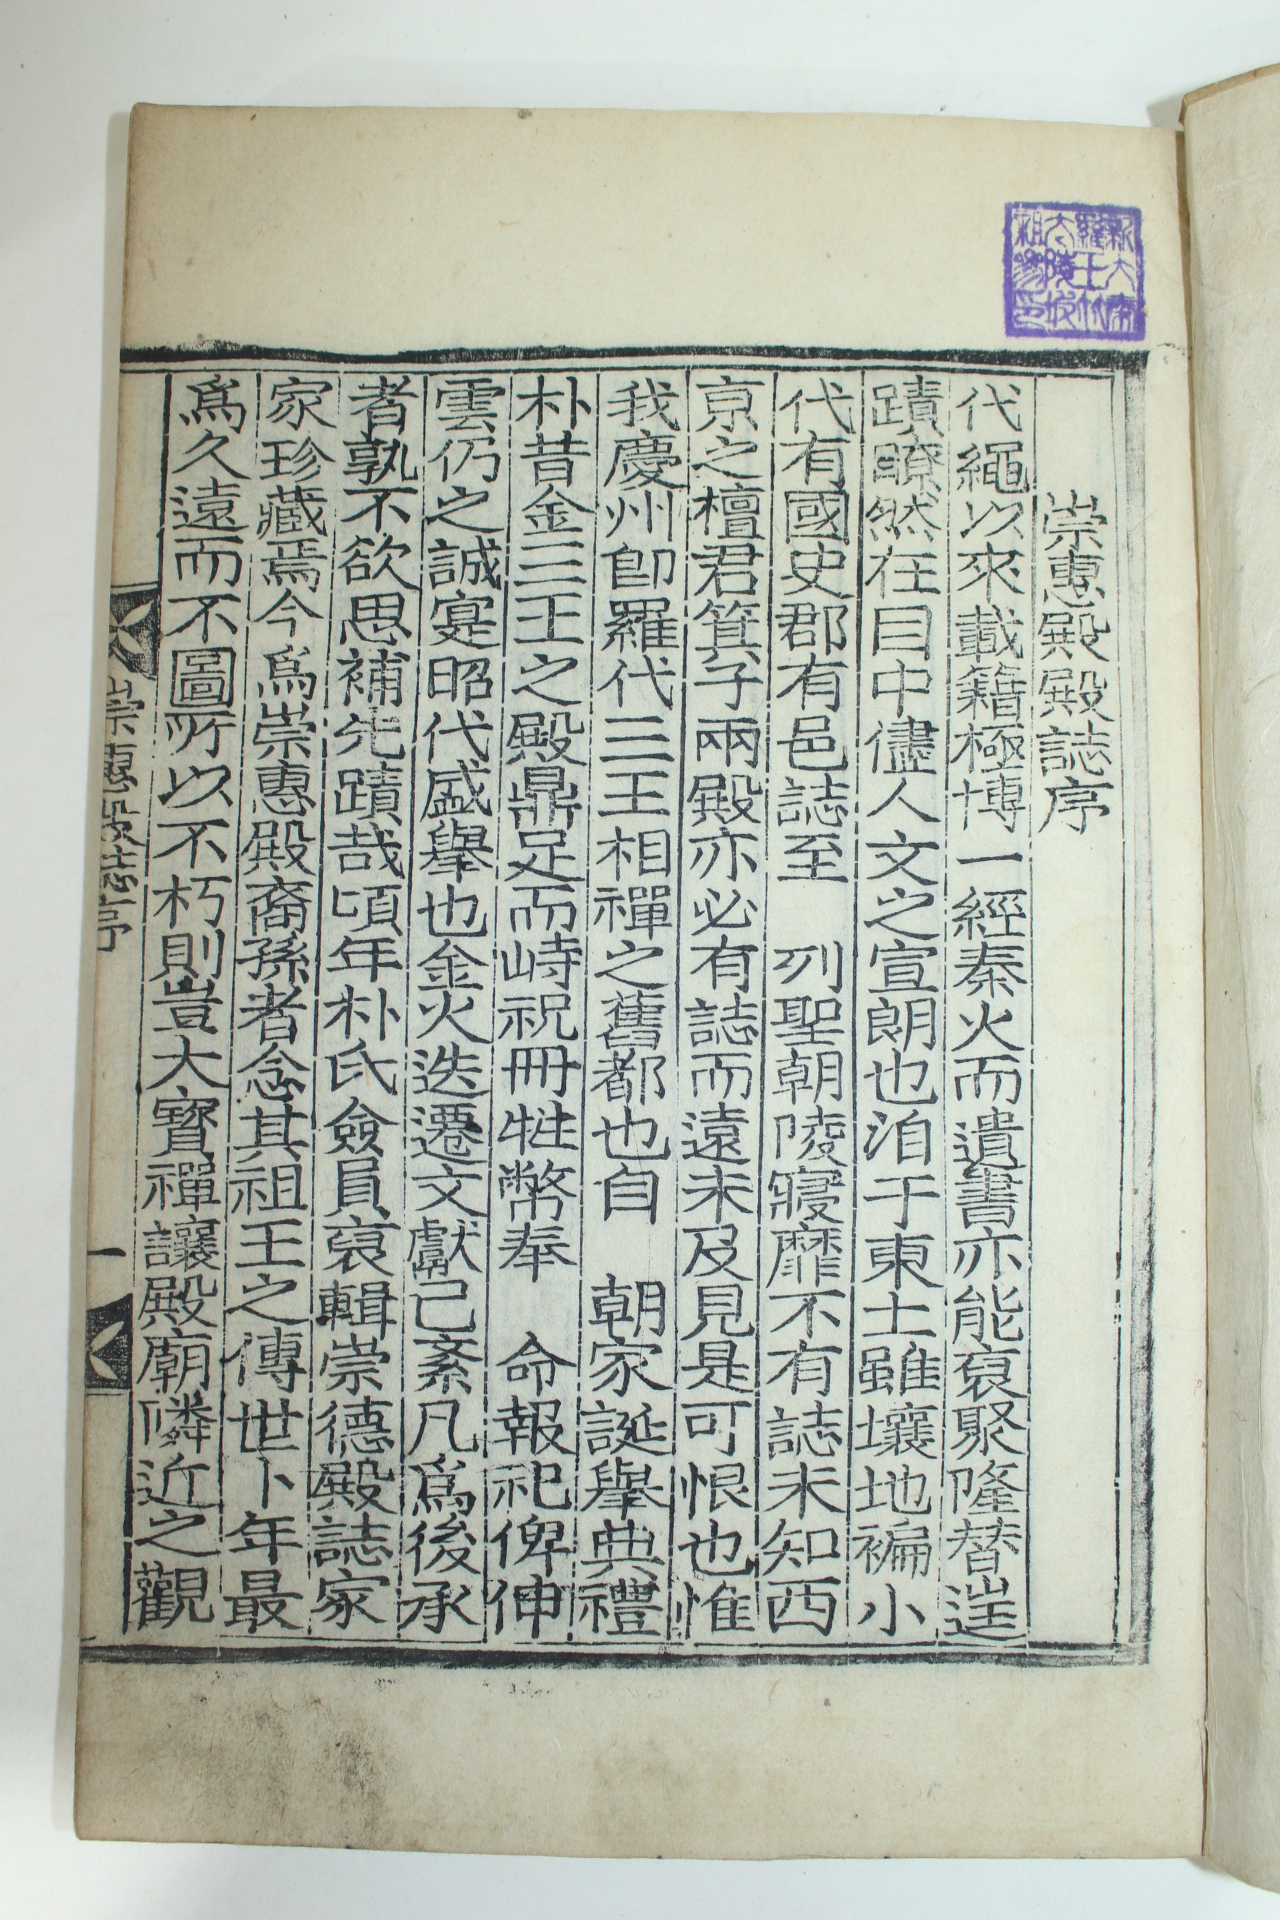 崇惠殿殿誌序
代繩以來載籍極博一經秦火而遺書亦能裒聚隆替遑
蹟瞭然在目中儘人文之宣朗也洎于東土雖壤地褊小
代有國史郡有邑誌至 列聖朝陵寢靡不有誌未知西
京之檀君箕子兩殿亦必有誌而遠未及見是可恨也惟
我慶州卽羅代三王相禪之舊都也自 朝家誕擧典禮
朴昔金三王之殿鼎足而峙祝冊牲幣奉 命報祀俾伸
雲仍之誠寔昭代盛擧也金火迭遷文獻已紊凡爲後承
者孰不欲思補先蹟哉頃年朴氏僉員裒輯崇德殿誌家
家珍藏焉今爲崇惠殿裔孫者念其祖王之傳世卜年最
爲久遠而不圖所以不朽則豈大寶禪讓殿廟隣近之觀
崇惠殿誌序
一